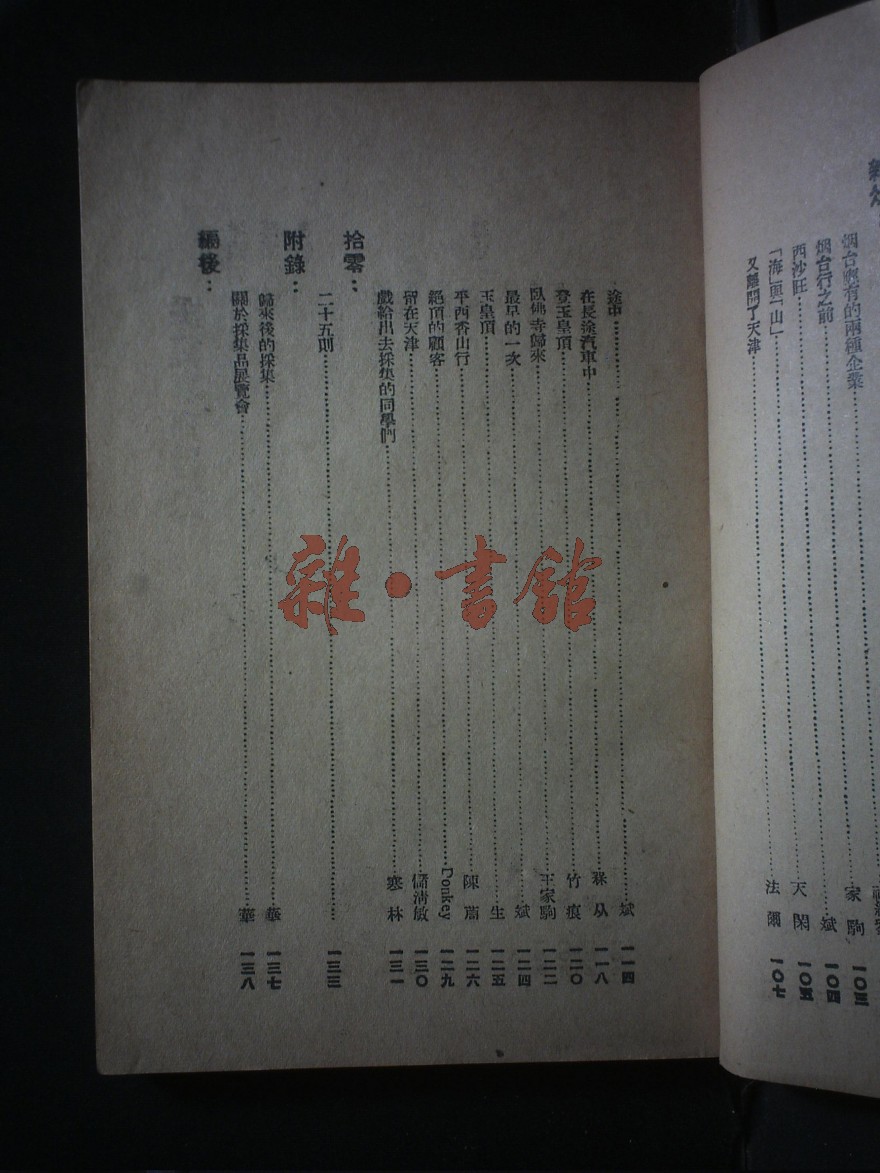 烟台應有的兩種企業 家駒 一〇三
烟台行之前 斌 一〇四
西沙旺 天閑 一〇五
「海」與「山」
又離開了天津 法爾 一〇七
途中 斌 一一四
在長途汽車中 霖从 一一八
登玉皇頂 竹痕 一二〇
臥佛寺歸來 王家駒 一二二
最早的一次 斌 一二四
玉皇頂 生 一二五
平西香山行 陳蕭 一二六
絕頂的顧客 Donkey 一二九
留在天津 儲淸敏 一三〇
戲給出去採集的同學們 寒林 一三一
拾零：
二十五則 一三三
附錄：
歸來後的採集 華 一三七
關於採集品展覽會 華 一三八
編後：
雜·書館